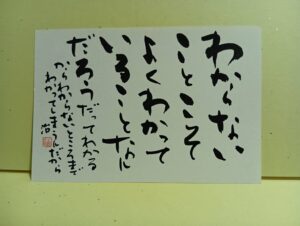 わからない
ことこそ
よくわかって
いることなん
だろうだってわかる
からわからないところまで
わかってしまうんだから